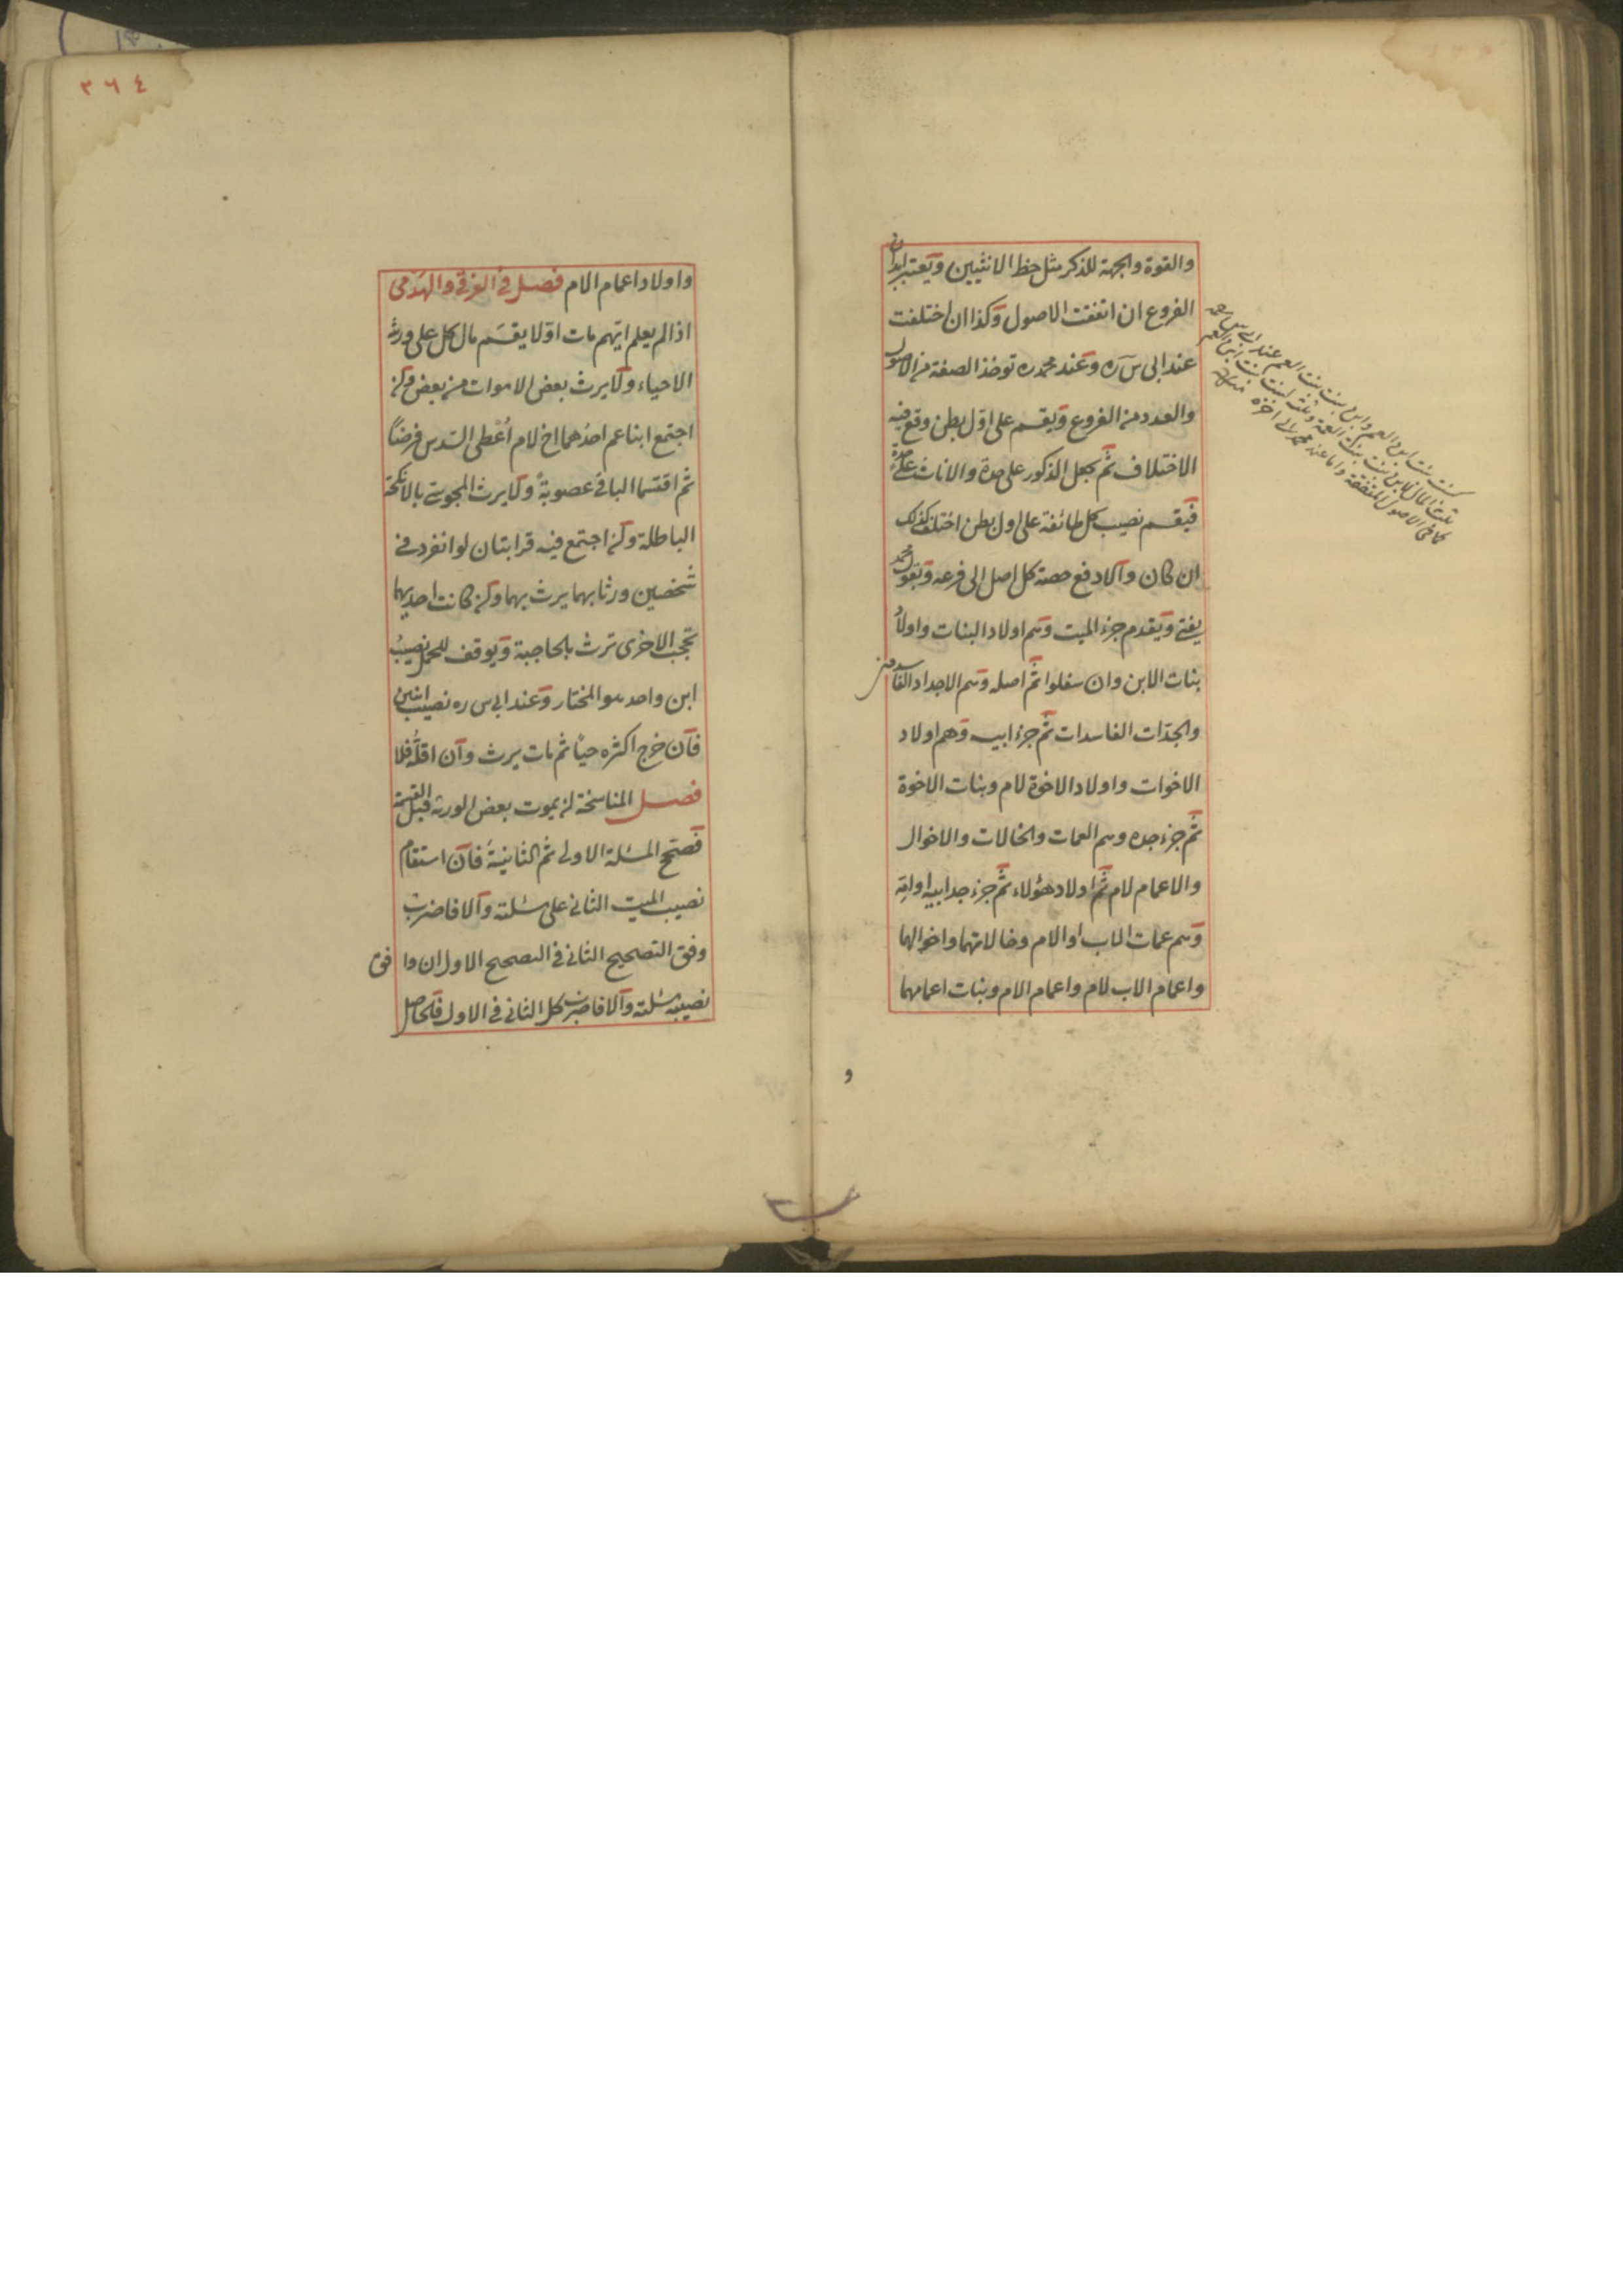 والقوة والجهة للذكر مثل حظ الانثيين ويعتبر ابدان
الفروع ان اتفقت الاصول وكذا ان اختلفت
عند ابى س ره وعند محمد ره تؤخذ الصفة من الاصول
والعدد من الفروع ويقسم على اول بطن وقع فيه
الاختلاف ثم يجعل الذكور على حدة والاناث على حدة
فيقسم نصيب كل طائفة على اول بطن اختلف كذلك
ان كان والا دفع حصة كل اصل الى فرعه وبقول محمد
يفتى ويقدم جزء الميت وهم اولاد البنات واولاد
بنات الابن وان سفلوا ثم اصله وهم الاجداد الفاسدين
والجدّات الفاسدات ثم جزء ابيه وهم اولاد
الاخوات واولاد الاخوة لام وبنات الاخوة
ثم جزء جده وهم العمات والخالات والاخوال
والاعمام لام ثم اولاد هؤلاء ثم جزء جد ابيه او امّه
وهم عمات الاب او الام وخالاتهما واخوالهما
واعمام الاب لام واعمام الام وبنات اعمامهما
و
٣٦٤
واولاد اعمام الام فصل فى الغرقى والهدمى
اذا لم يعلم ايّهم مات اوّلا يقسَم مال كل على ورثه
الاحياء ولا يرث بعض الاموات من بعض وان
اجتمع ابنا عم احدُهما اخ لام اُعْطى السّدس فرضاً
ثم اقتسما الباقى عصوبةً ولا يرث المجوسى بالانكحة
الباطلة وان اجتمع فيه قرابتان لو انفرد فى
شخصين ورثا بهما يرث بهما وان كانت احديهما
تحجب الاخرى ترث بالحاجبة ويوقف للحمل نصيبُ
ابن واحد هو المختار وعند ابى س ره نصيب ابنين
فان خرج اكثره حيا ثم مات يرث وان اقلّه فلا
فصل المناسخة ان يموت بعض الورثه قبل القسمة
فصحّح المسئلة الاولى ثم الثانية فان استقام
نصيب الميت الثانى على مسئلته والا فاضرب
وفق التصحيح الثانى فى التصحيح الاول ان وافق
نصيبه مسئلته والا فاضرب كل الثانى فى الاول فالحاصل